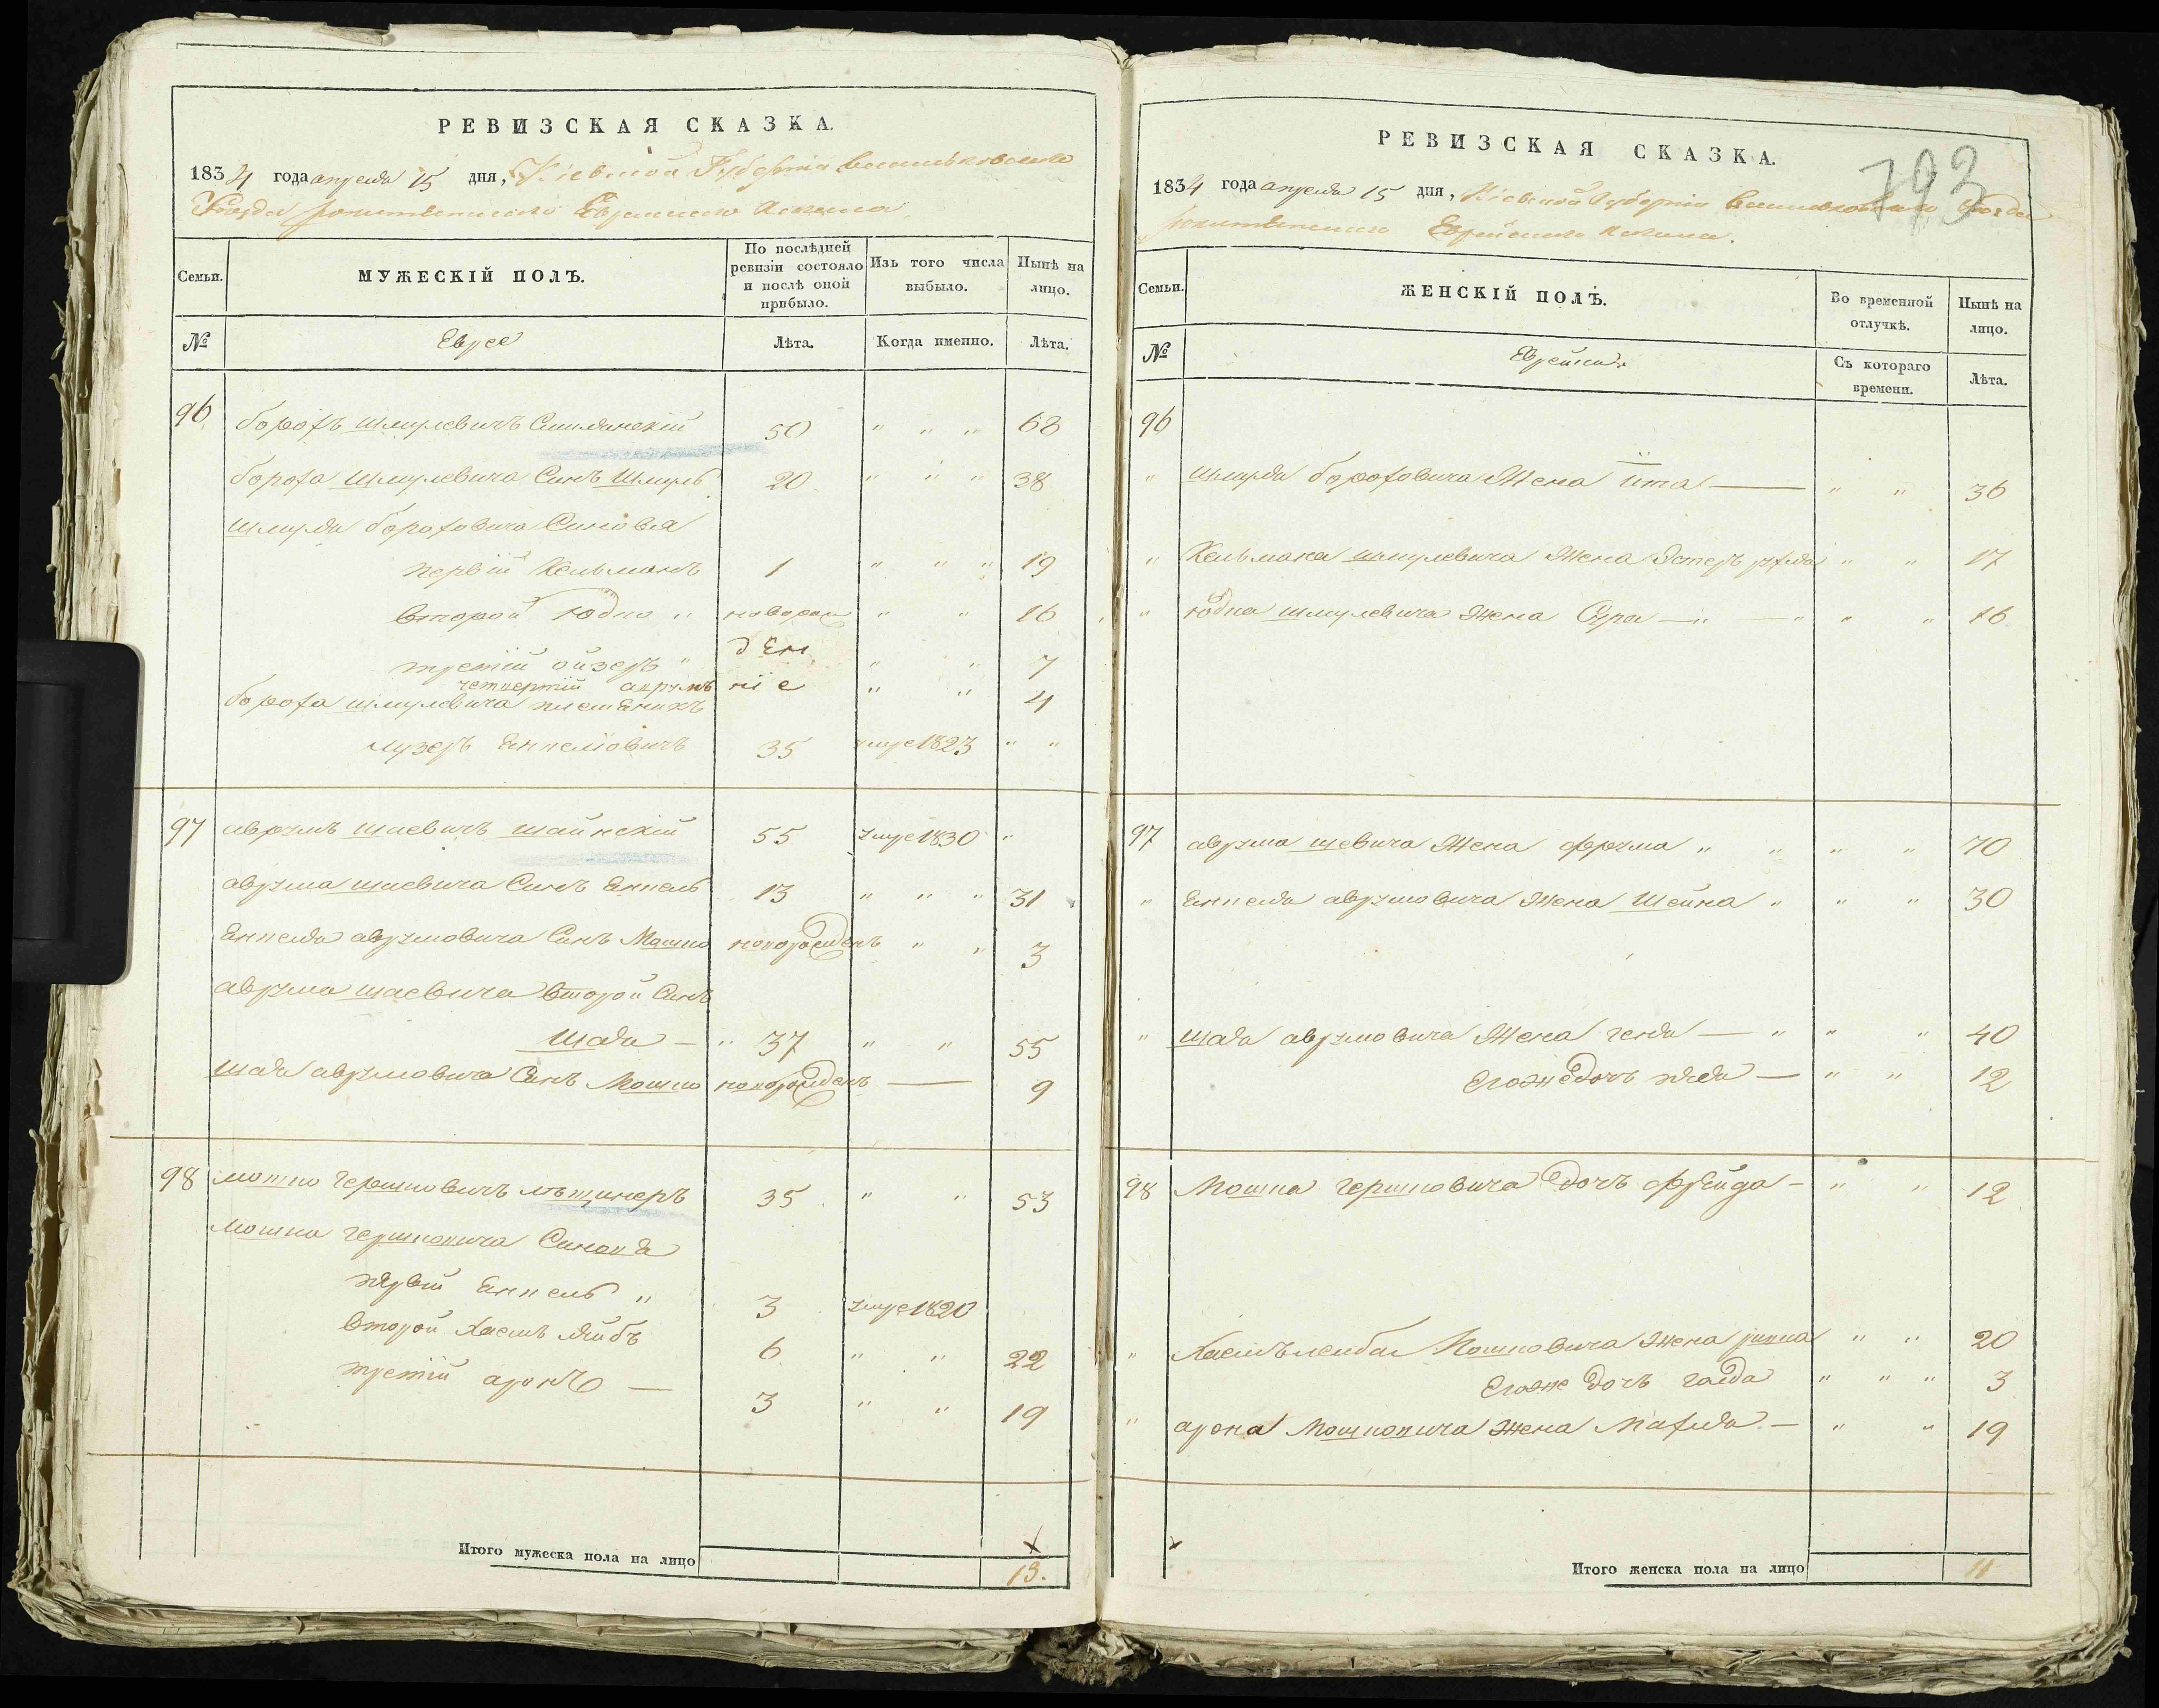 РЕВИЗСКАЯ СКАЗКА.
1834 года апреля 15 дня, Кіевской Губерніи Васильковского
Уезда Еврейского
Семьи. МУЖЕСКІЙ ПОЛЪ. По послѣдней ревизіи состояло и послѣ оной прибыло. Изъ того числа выбыло. Нынѣ на лицо.
№ Еврее Лѣта. Когда именно. Лѣта.
96 борохъ шмулевичъ Смилянскій 50 " " " 68
бороха шмулевича Синъ Шмуль 20 " " " 38
шмуля бороховича Синовя
первій Кельманъ 1 " " " 19
второй юдко " новорож " " 16
третій ойзеръ " ден " " 7
четвертій аврумъ ніе " " 4
бороха шмулевича племеникъ
лузеръ 35 умре 1823 " "
97 аврумъ шаевичъ шаинскій 55 умре 1830 "
аврума шаевича Синъ Енкель 13 " " " 31
Енкеля аврумовича Синъ Мошко новорожденъ " " 3
аврума шаевича Второй Синъ
Шая — " 37 " " 55
шая аврумовича Синъ Мошко новорожденъ — 9
98 мошко гершковичъ 35 " " 53
мошка гершковича Синовя
первій Енкель " 3 умре 1820
второй Хаемъ лейбъ 6 " " 22
третій аронъ — 3 " " 19
Итого мужеска пола на лицо 13.
РЕВИЗСКАЯ СКАЗКА.
793
1834 года апреля 15 дня, Кіевской Губерніи Васильковского Уезда
Еврейского
Семьи. ЖЕНСКІЙ ПОЛЪ. Во временной отлучкѣ. Нынѣ на лицо.
№ Еврейки Съ котораго времени. Лѣта.
96
" шмуля бороховича Жена ита — " " 36
" Кельмана шмулевича Жена Эстеръ рухля " " 17
" юдка шмулевича Жена Сура — " — " " " 16
97 аврума шевича Жена фрума " " " " 70
" Енкеля аврумовича Жена Шейна " " " 30
" шая аврумовича Жена геня — " " " 40
Егоже дочъ — " " 12
98 Мошка гершковича дочъ фрейда — " " 12
" Хаемълейба Мошковича Жена ривка " " 20
Егоже дочъ голда " " " 3
" арона Мошковича Жена Махля — " " 19
Итого женска пола на лицо 11